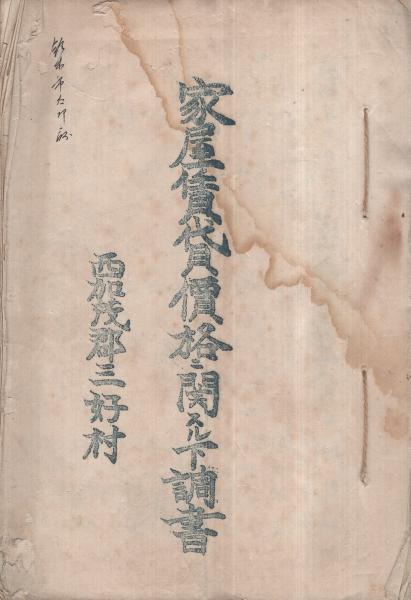 家屋賃貸價格ニ関スル下調書
西加茂郡三好村